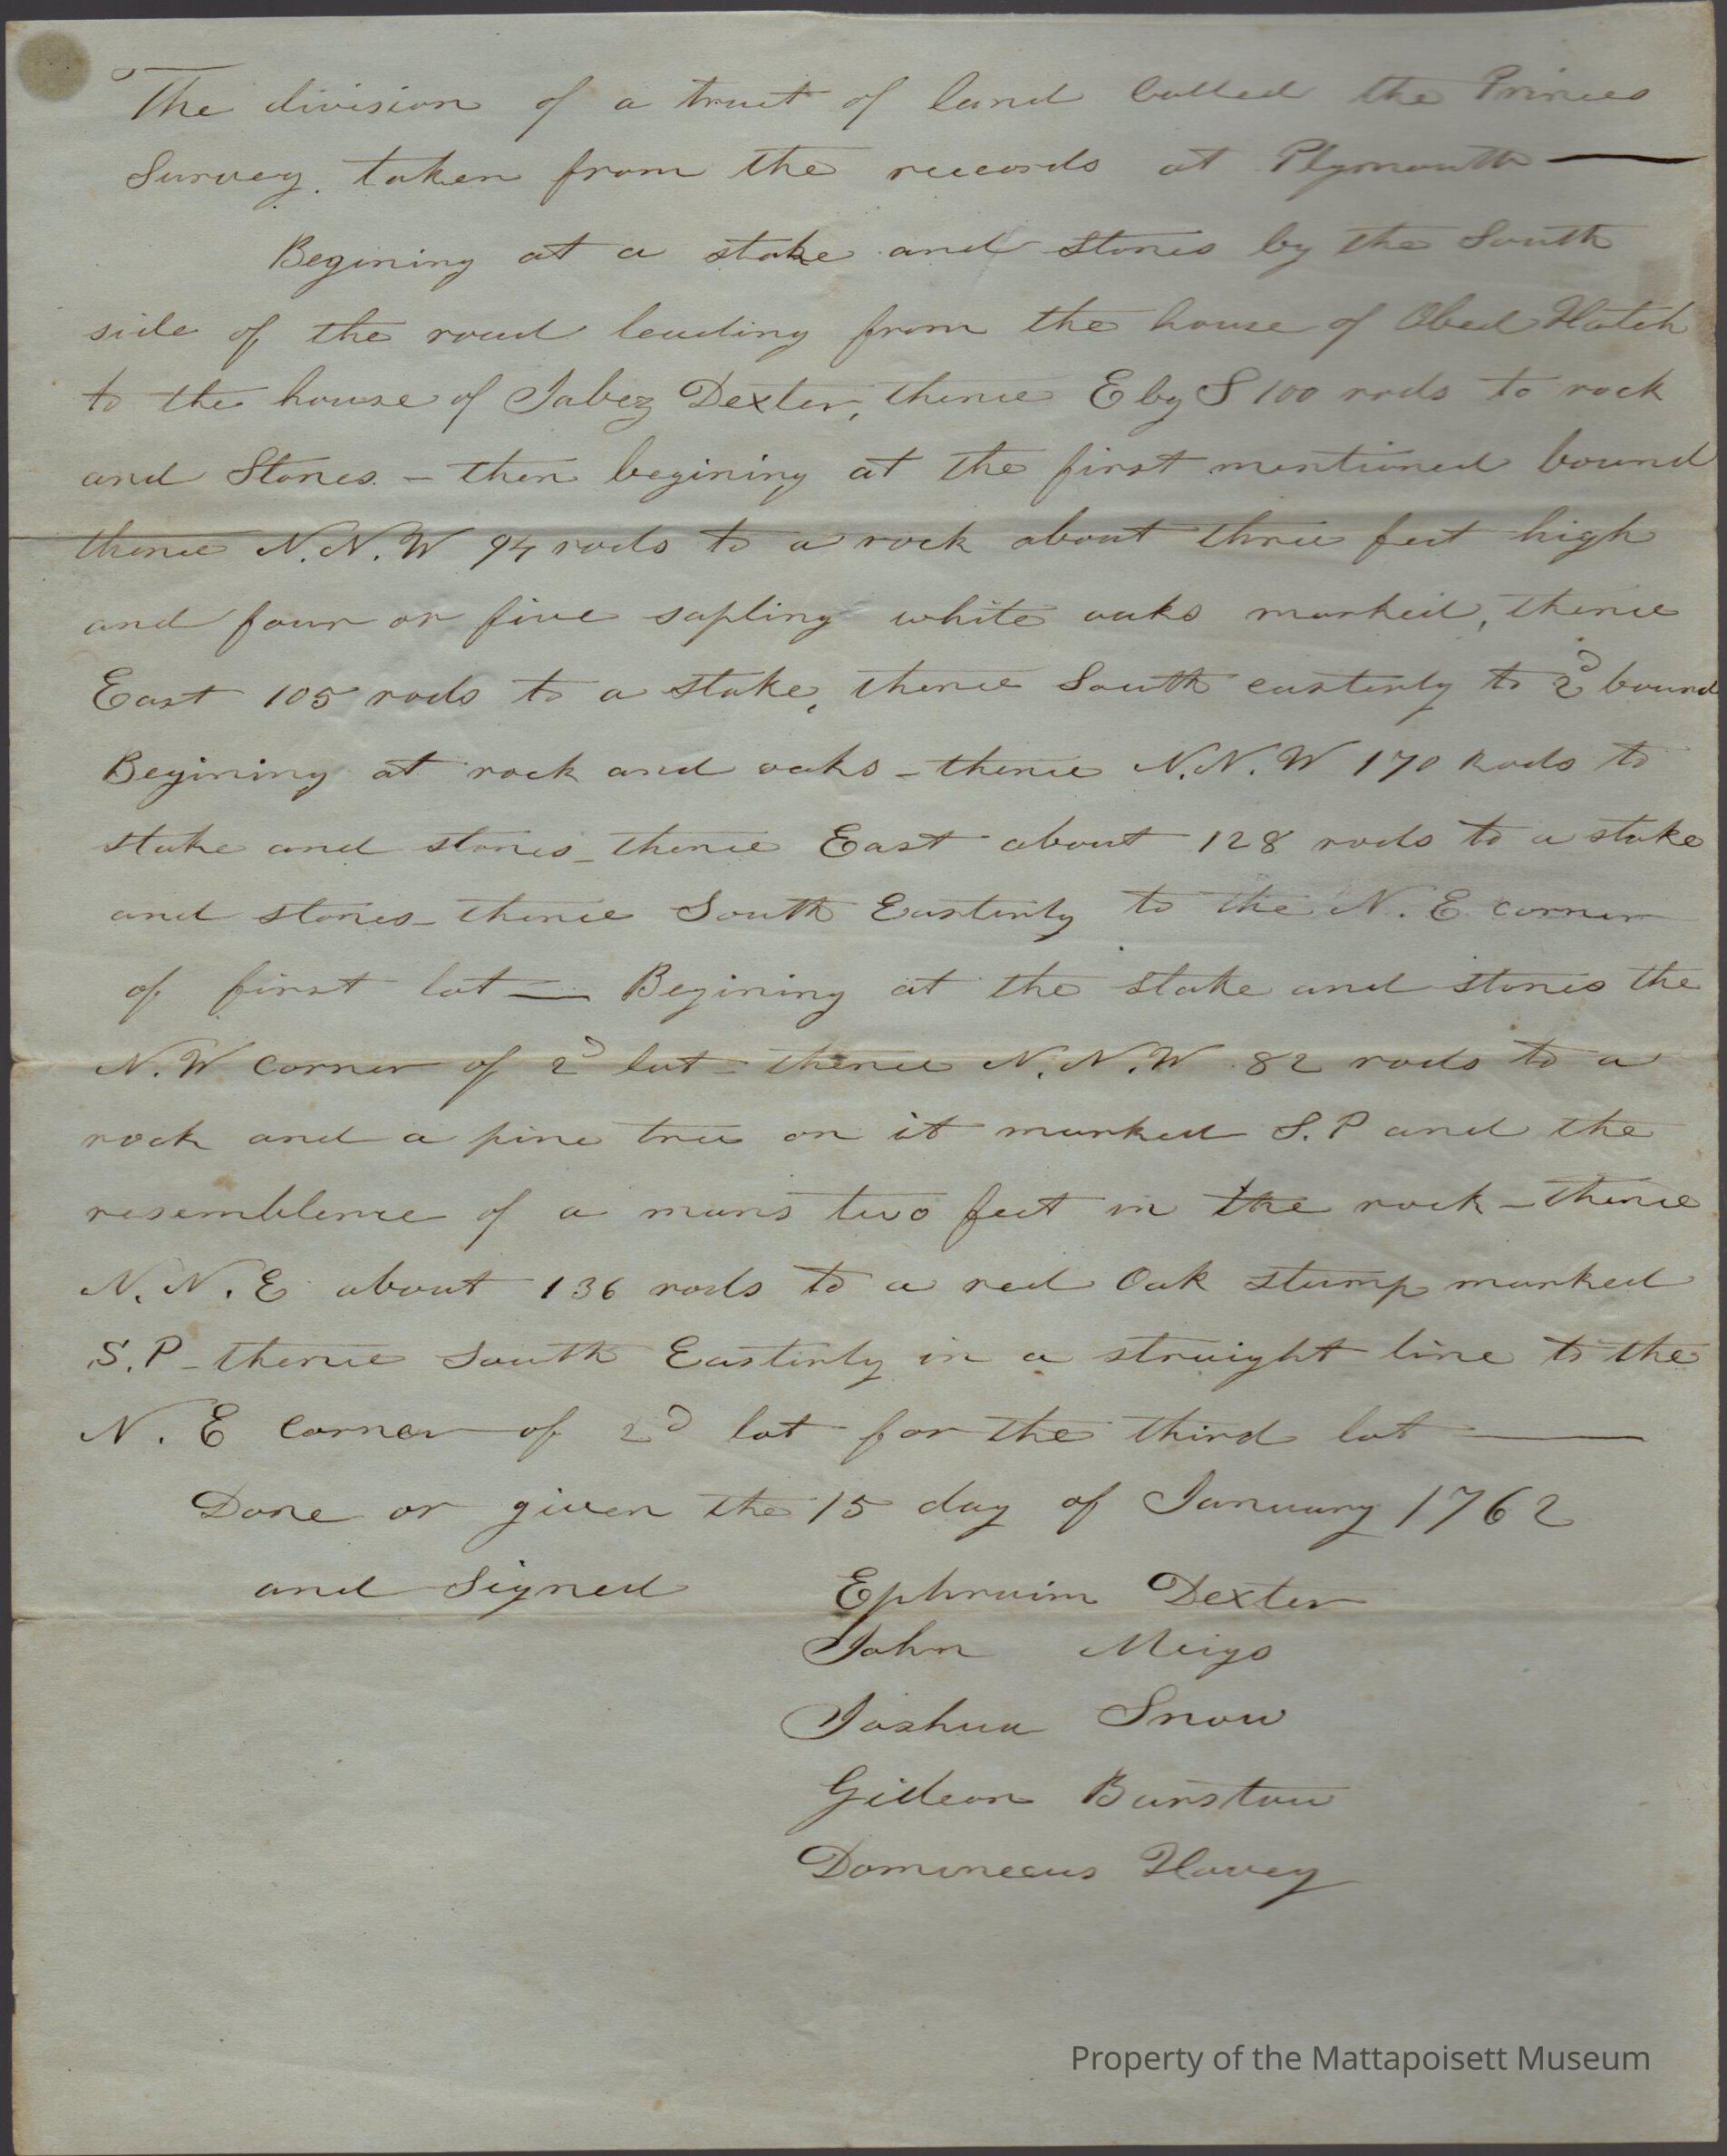 The division of a tract of land Called the Princes
Survey. taken from the records at Plymouth —
Begining at a stake and stones by the South
side of the road leading from the house of Obed Hatch
to the house of Jabez Dexter, thence E by S 100 rods to rock
and Stones. - then begining at the first mentioned bound
thence N.N.W 94 rods to a rock about three feet high
and four or five sapling white oaks marked, thence
East 105 rods to a stake, thence South easterly to 2d bound
Begining at rock and oaks - thence N.N.W 170 Rods to
stake and stones - thence East about 128 rods to a stake
and stones - thence South Easterly to the N. E corner
of first lot — Begining at the stake and stones the
N.W corner of 2d lot - thence N.N.W 82 rods to a
rock and a pine tree on it marked S.P and the
resemblence of a mans two feet in the rock - thence
N.N.E about 136 rods to a red Oak stump marked
S.P - thence South Easterly in a straight line to the
N. E Corner of 2d lot for the third lot —
Done or given the 15 day of January 1762
and Signed Ephraim Dexter
John Meigs
Joshua Snow
Gideon Barstow
Dominecus Hovey
Property of the Mattapoisett Museum